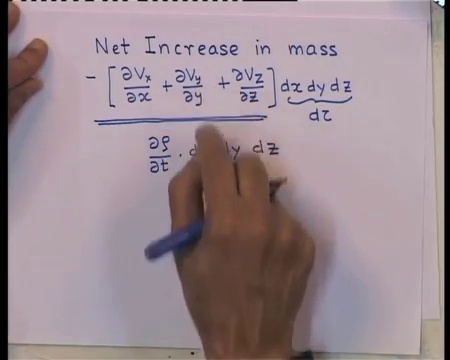 Net Increase in mass
- [ ∂Vx/∂x + ∂Vy/∂y + ∂Vz/∂z ] dx dy dz
dτ
∂ρ/∂t . d dy dz